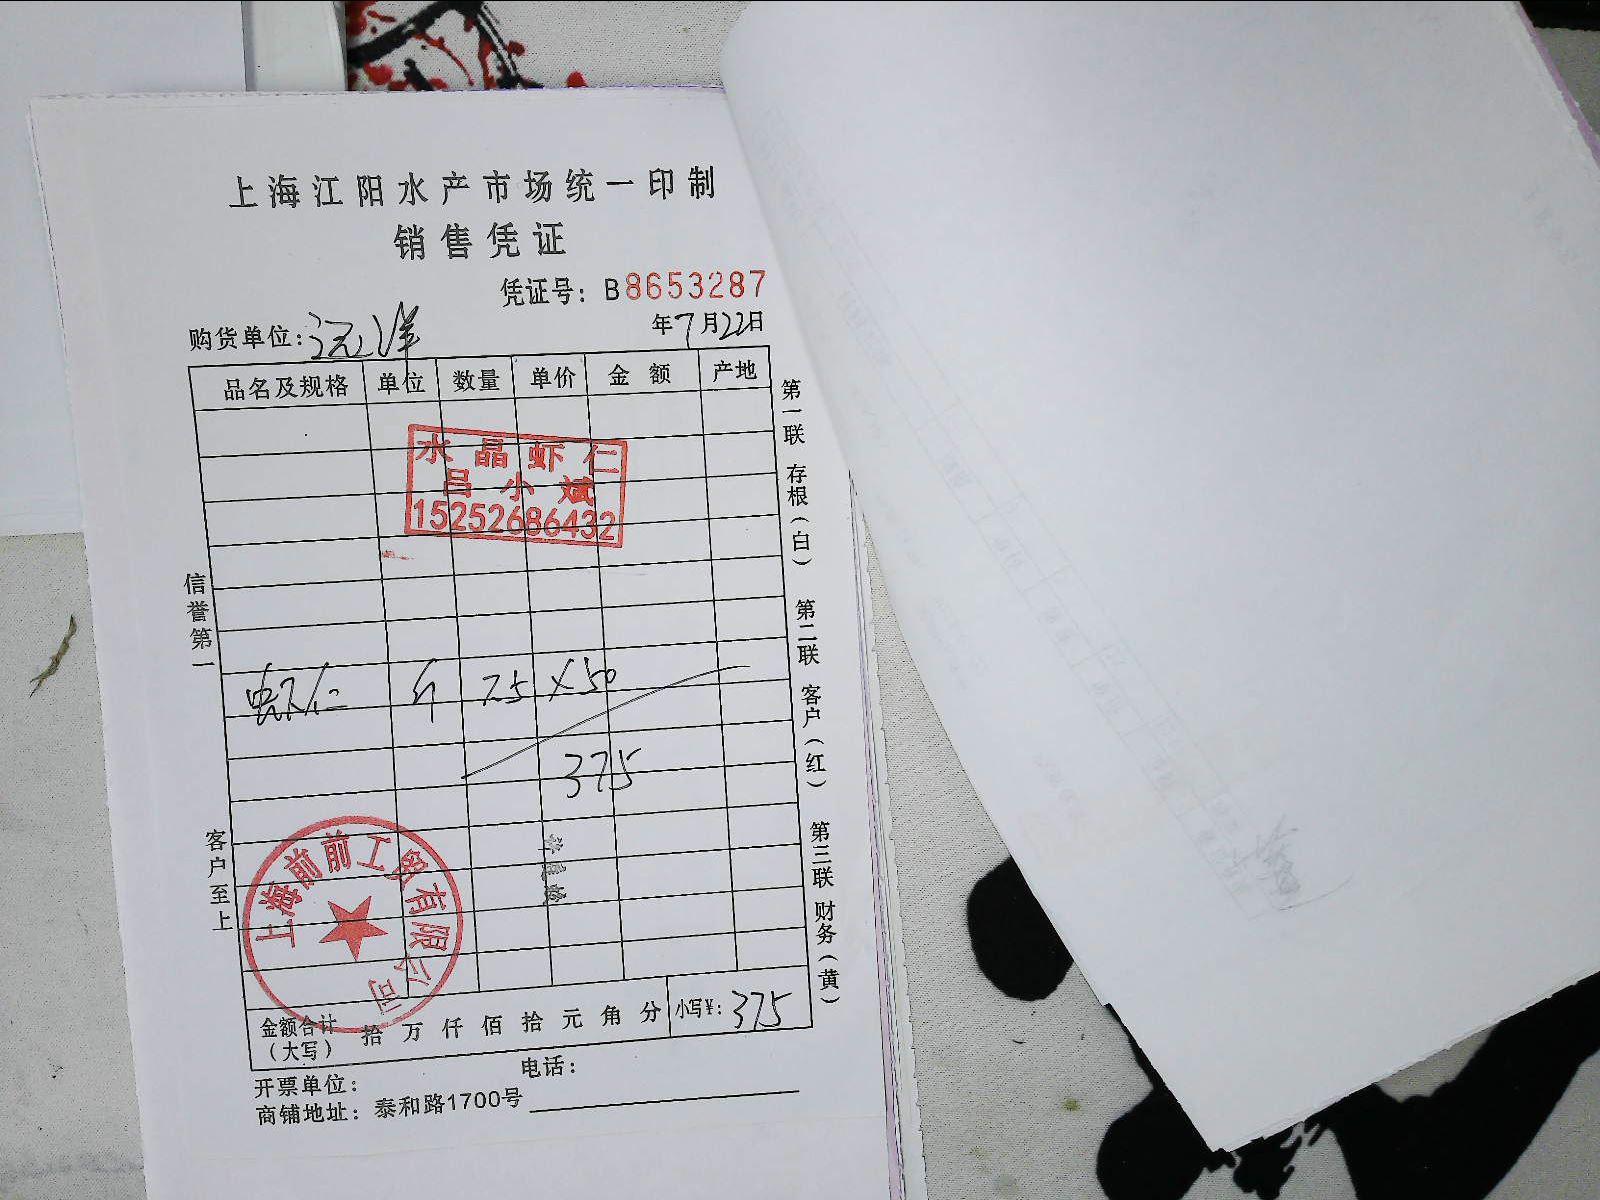 上海江阳水产市场统一印制
销售凭证
凭证号：B8653287
购货单位：远洋
年7月22日
品名及规格 单位 数量 单价 金额 产地
水晶虾仁
吕小斌
15252686432
虾仁 斤 7.5 X 50
375
上海前前工贸有限公司
金额合计（大写） 拾 万 仟 佰 拾 元 角 分 小写¥：375
开票单位： 电话：
商铺地址：泰和路1700号
信誉第一
客户至上
第一联 存根（白）
第二联 客户（红）
第三联 财务（黄）